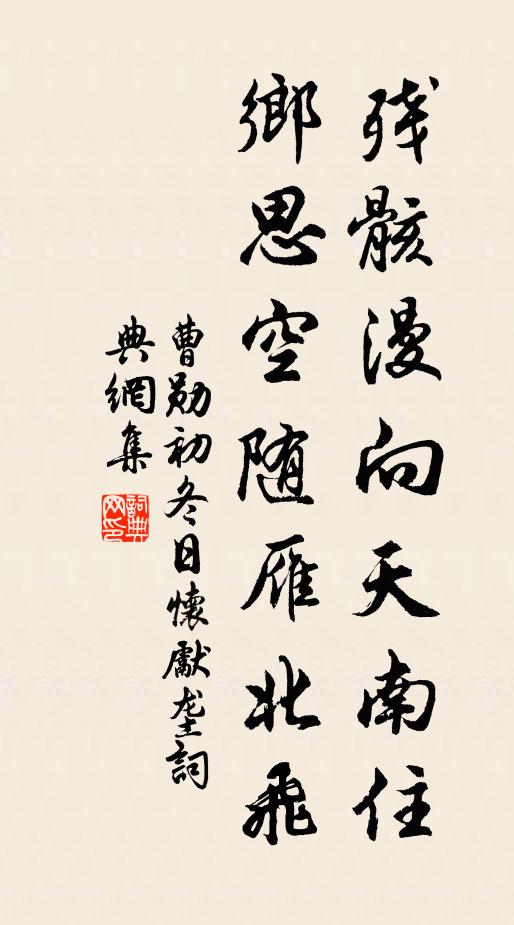 残骸漫向天南住
鄉思空随雁北飛
曹勛初冬日懷獻垄詞
典網集
詞典网印